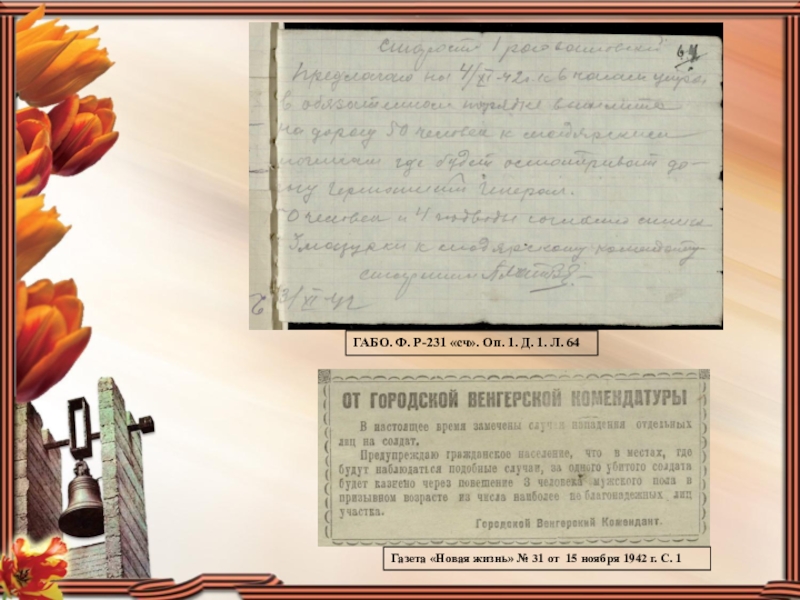 64
Предлагаю на 4/XI-42 г. к 6 часам утра
в обязательном порядке выслать
на дорогу 50 человек к мадьярским
могилам где будет осматривать до-
рогу Германский Генерал.
0 человек и 4 подводы согласно списка
к мадьярскому коменданту
старшина
3/XI-42
ГАБО. Ф. Р-231 «сч». Оп. 1. Д. 1. Л. 64
ОТ ГОРОДСКОЙ ВЕНГЕРСКОЙ КОМЕНДАТУРЫ
В настоящее время замечены случаи нападения отдельных
лиц на солдат.
Предупреждаю гражданское население, что в местах, где
будут наблюдаться подобные случаи, за одного убитого солдата
будет казнено через повешение 3 человека мужского пола в
призывном возрасте из числа наиболее неблагонадежных лиц
участка.
Городской Венгерский Комендант.
Газета «Новая жизнь» № 31 от 15 ноября 1942 г. С. 1